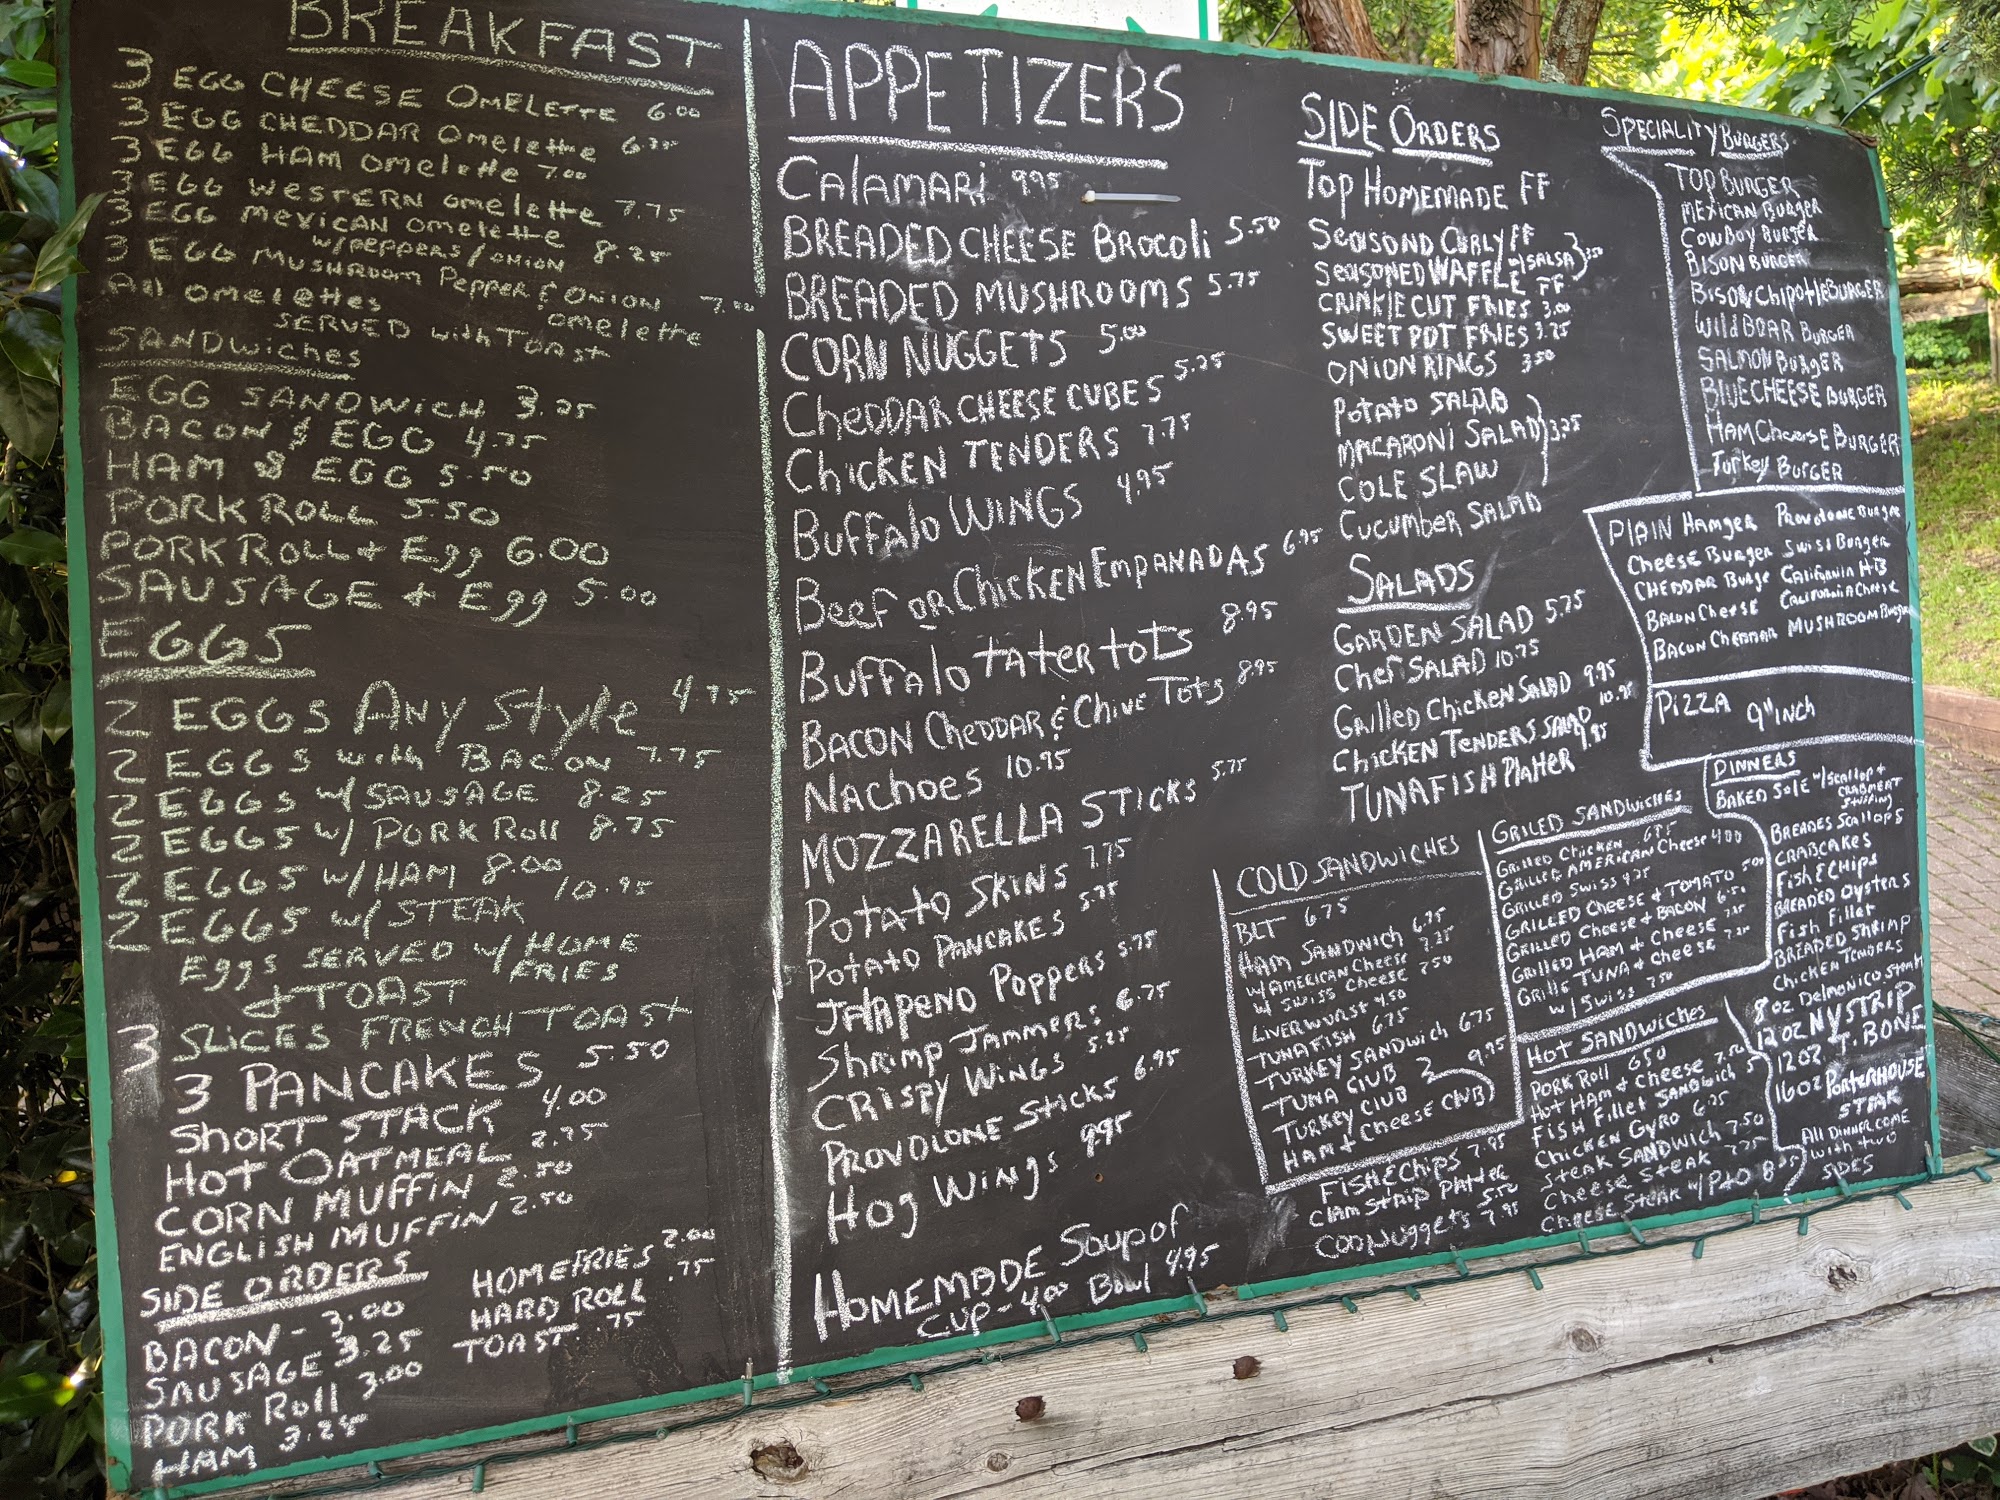 BREAKFAST
3 EGG CHEESE OMELETTE 6.00
3 EGG CHEDDAR OMELETTE 6.75
3 EGG HAM OMELETTE 7.00
3 EGG WESTERN OMELETTE 7.75
3 EGG MEXICAN OMELETTE
W/PEPPERS/ONION 8.25
3 EGG MUSHROOM PEPPER & ONION 7.00
OMELETTE
All OMELETTES
SERVED with TOAST
SANDWICHES
EGG SANDWICH 3.25
BACON & EGG 4.75
HAM & EGG 5.50
PORK ROLL 5.50
PORK ROLL + Egg 6.00
SAUSAGE + Egg 5.00
EGGS
2 EGGS Any Style 4.75
2 EGGS with BACON 7.75
2 EGGS W/SAUSAGE 8.25
2 EGGS W/ PORK Roll 8.75
2 EGGS W/HAM 8.00
2 EGGS W/ STEAK 10.95
Eggs SERVED W/ HOME
FRIES
& TOAST
3 SLICES FRENCH TOAST
3 PANCAKES 5.50
SHORT STACK 4.00
HOT OATMEAL 2.75
CORN MUFFIN 2.50
ENGLISH MUFFIN 2.50
SIDE ORDERS
BACON - 3.00
SAUSAGE 3.25
PORK Roll 3.00
HAM 3.25
HOMEFRIES 2.00
HARD ROLL .75
TOAST .75
APPETIZERS
CALAMARI 9.95
BREADED CHEESE BROCOLI 5.50
BREADED MUSHROOMS 5.75
CORN NUGGETS 5.00
CHEDDAR CHEESE CUBES 5.25
CHICKEN TENDERS 7.75
BUFFALO WINGS 4.95
Beef OR CHICKEN EMPANADAS 6.95
BUFFALO TATER TOTS 8.95
BACON CHEDDAR & CHIVE TOTS 8.95
NACHOES 10.95
MOZZARELLA STICKS 5.75
POTATO SKINS 7.75
POTATO PANCAKES 5.75
JALAPENO POPPERS 5.75
SHRIMP JAMMERS 6.75
CRISPY WINGS 5.25
PROVOLONE STICKS 6.95
HOG WINGS 9.95
HOMEMADE SOUP OF
CUP - 4.00 BOWL 4.95
SIDE ORDERS
TOP HOMEMADE FF
SEASOND CURLY FF
SEASONED WAFFLE FF
W/SALSA
CRINKLE CUT FRIES 3.00
SWEET POT FRIES 3.25
ONION RINGS 3.50
POTATO SALAD
MACARONI SALAD 3.25
COLE SLAW
CUCUMBER SALAD
SALADS
GARDEN SALAD 5.75
CHEF SALAD 10.75
GRILLED CHICKEN SALAD 9.95
CHICKEN TENDERS SALAD 10.95
TUNAFISH PLATTER 9.95
COLD SANDWICHES
BLT 6.75
HAM SANDWICH 6.95
W/AMERICAN CHEESE 7.25
W/ SWISS CHEESE 7.50
LIVERWURST 4.50
TUNAFISH 6.75
TURKEY SANDWICH 6.75
TUNA CLUB
TURKEY CLUB 9.95
HAM + CHEESE CLUB
FISH & CHIPS 7.95
CLAM STRIP PLATTER
COD NUGGETS 7.95
GRILED SANDWICHES
GRILLED CHICKEN 6.75
GRILLED AMERICAN CHEESE 4.00
GRILLED SWISS 4.25
GRILLED CHEESE & TOMATO 5.00
GRILLED CHEESE & BACON 6.50
GRILLED HAM + CHEESE 7.25
GRILLE TUNA + CHEESE 7.25
W/ SWISS 7.50
HOT SANDWICHES
PORK Roll 6.50
HOT HAM & CHEESE 7.50
FISH FILLET SANDWICH
CHICKEN GYRO 6.75
STEAK SANDWICH 7.50
CHEESE STEAK 7.75
CHEESE STEAK W/ P&O
SPECIALITY BURGERS
TOP BURGER
MEXICAN BURGER
COWBOY BURGER
BISON BURGER
BISON CHIPOTLE BURGER
WILD BOAR BURGER
SALMON BURGER
BLUE CHEESE BURGER
HAM CHEESE BURGER
TURKEY BURGER
PLAIN HAMGER PROVOLONE BURGER
CHEESE BURGER SWISS BURGER
CHEDDAR BURGE CALIFORNIA HB
BACON CHEESE CALIFORNIA CHEESE
BACON CHEDDAR MUSHROOM BURGER
PIZZA 9" INCH
DINNERS
BAKED SOLE W/SCALLOP +
CRABMEAT
STUFFING
BREADES SCALLOPS
CRABCAKES
FISH & CHIPS
BREADED OYSTERS
FISH FILLET
BREADED SHRIMP
CHICKEN TENDERS
8 OZ DELMONICO STEAK
12 OZ NY STRIP
12 OZ T. BONE
16 OZ PORTERHOUSE
STEAK
All DINNER COME
WITH TWO
SIDES